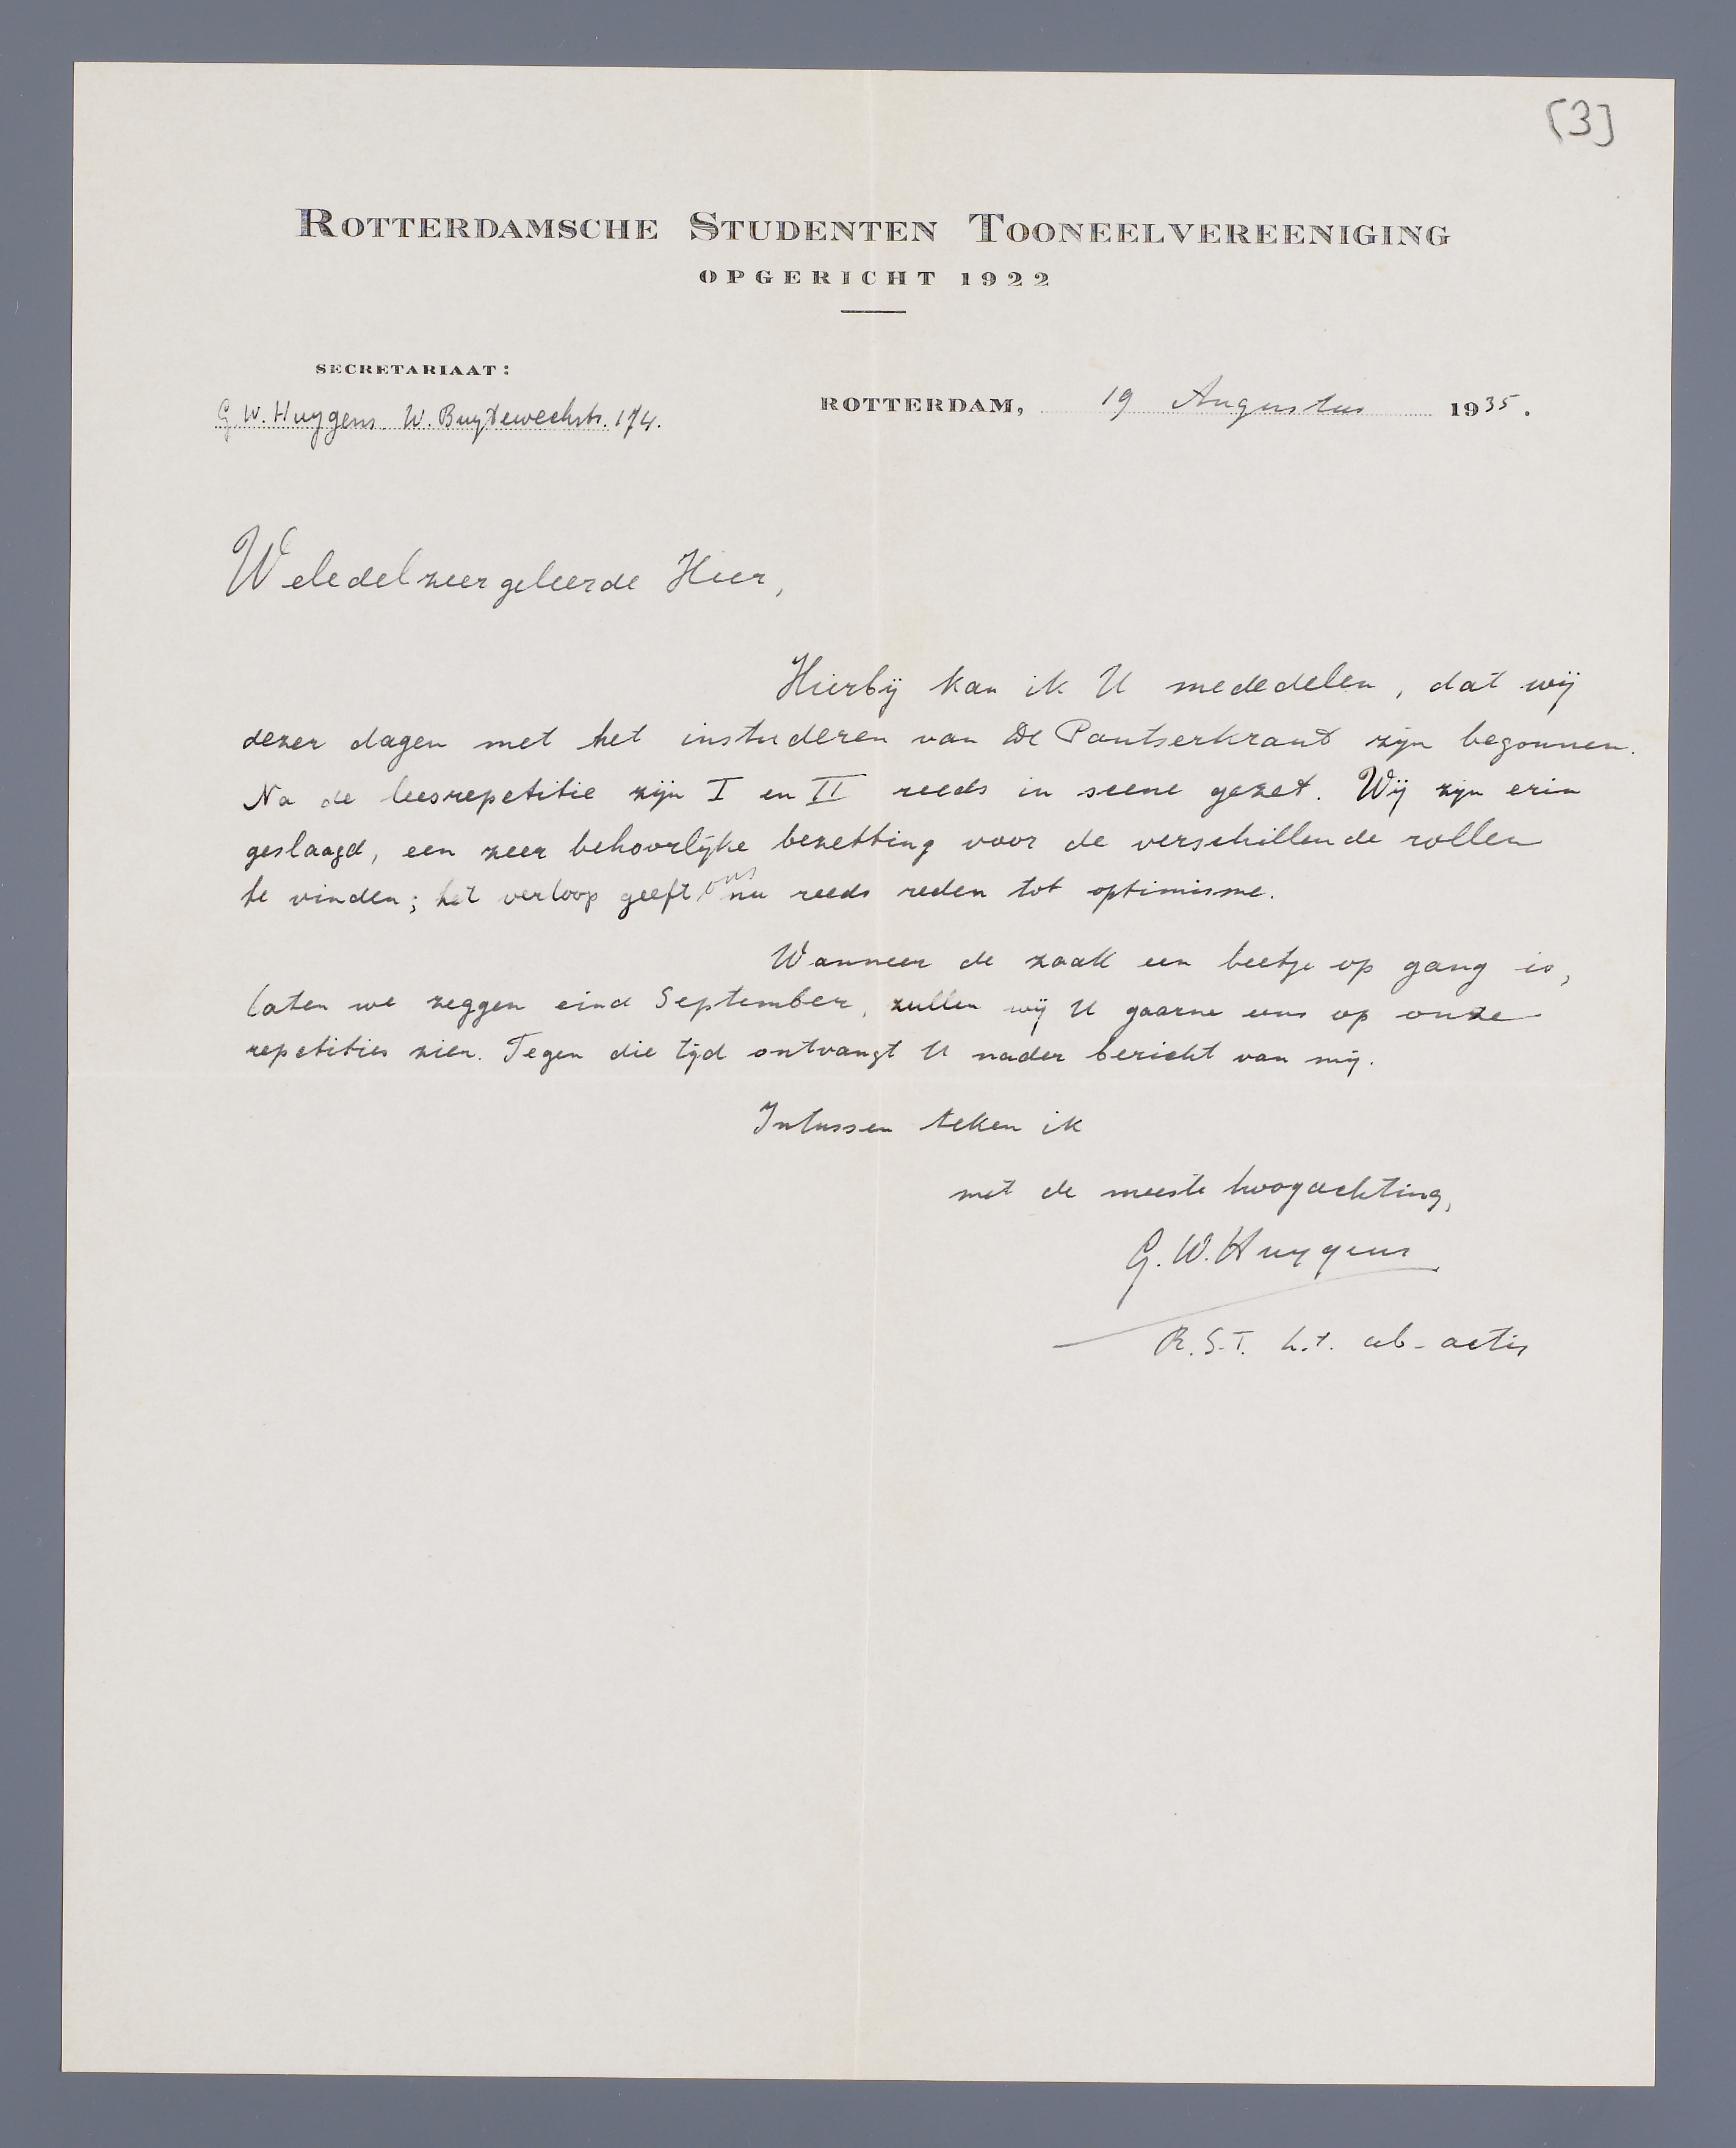 [3]
ROTTERDAMSCHE STUDENTEN TOONEELVEREENIGING
OPGERICHT 1922
SECRETARIAAT:
G. W. Huygens. W. Buytewechstr. 174.
ROTTERDAM, 19 Augustus 1935.
Weledelzeergeleerde Heer,
Hierbij kan ik U mededelen, dat wij
dezer dagen met het instuderen van De Pantserkrant zijn begonnen.
Na de leesrepetitie zijn I en II reeds in scene gezet. Wij zijn erin
geslaagd, een zeer behoorlijke bezetting voor de verschillende rollen
te vinden; het verloop geeft ons nu reeds reden tot optimisme.
Wanneer de zaak een beetje op gang is,
laten we zeggen eind September, zullen wij U gaarne eens op onze
repetities zien. Tegen die tijd ontvangt U nader bericht van mij.
Intussen teken ik
met de meeste hoogachting,
G. W. Huygens
R.S.T. h.t. ab-actis